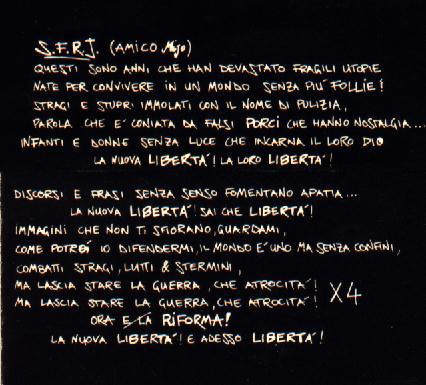 S.F.R.J. (AMICO Mijo)
QUESTI SONO ANNI CHE HAN DEVASTATO FRAGILI UTOPIE
NATE PER CONVIVERE IN UN MONDO SENZA PIU' FOLLIE!
STRAGI E STUPRI IMMOLATI CON IL NOME DI PULIZIA,
PAROLA CHE E' CONIATA DA FALSI PORCI CHE HANNO NOSTALGIA...
INFANTI E DONNE SENZA LUCE CHE INCARNA IL LORO DIO
LA NUOVA LIBERTA'! LA LORO LIBERTA'!
DISCORSI E FRASI SENZA SENSO FOMENTANO APATIA...
LA NUOVA LIBERTA'! SAI CHE LIBERTA'!
IMMAGINI CHE NON TI SFIORANO, GUARDAMI,
COME POTRÓ IO DIFENDERMI, IL MONDO E' UNO MA SENZA CONFINI,
COMBATTI STRAGI, LUTTI & STERMINI,
MA LASCIA STARE LA GUERRA, CHE ATROCITA'!
MA LASCIA STARE LA GUERRA, CHE ATROCITA'! X4
ORA E LA RIFORMA!
LA NUOVA LIBERTA'! E ADESSO LIBERTA'!